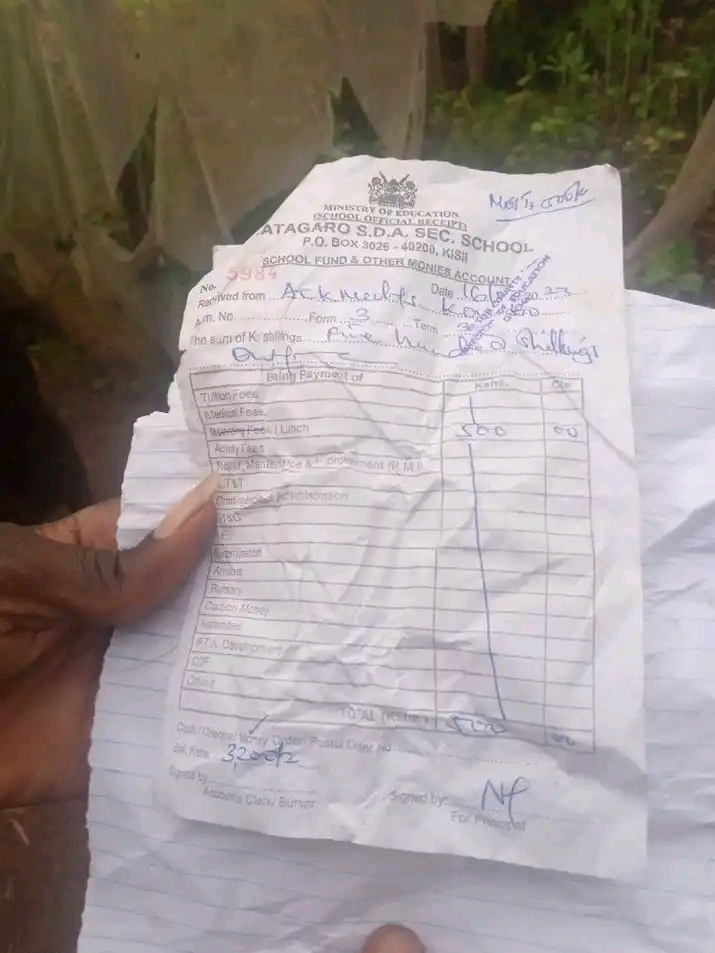 MINISTRY OF EDUCATION
(SCHOOL OFFICIAL RECEIPT)
ATAGARO S.D.A. SEC. SCHOOL
P.O. BOX 3026 - 40200, KISII
SCHOOL FUND & OTHER MONIES ACCOUNT
No. 5984
Date 16
Received from
Adm. No. Form 3 Term 3
The sum of K. shillings Five hundred shillings
Being Payment of Kshs. Cts
Tuition Fees
Medical Fees
Boarding Fees / Lunch 500 00
Activity Fees
Repair, Maintenance & Improvement (R.M.I)
L.T&T
Administration
Examination
Bursary
Caution Money
P.T.A. Development
CDF
TOTAL (Kshs.) 500 00
Cash / Cheque / Money Order / Postal Order No.
Bal. Kshs. 3,200/=
Signed by
Accounts Clerk/ Bursar
Signed by:
For Principal